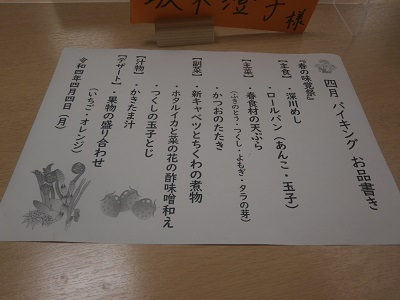 四月 バイキング お品書き
『春の味覚祭』
【主食】
・深川めし
・ロールパン（あんこ・玉子）
【主菜】
・春食材の天ぷら
（ふきのとう・つくし・よもぎ・タラの芽）
・かつおのたたき
【副菜】
・新キャベツとちくわの煮物
・ホタルイカと菜の花の酢味噌和え
・つくしの玉子とじ
【汁物】
・かきたま汁
【デザート】
・果物の盛り合わせ
（いちご・オレンジ）
令和四年四月四日（月）
様